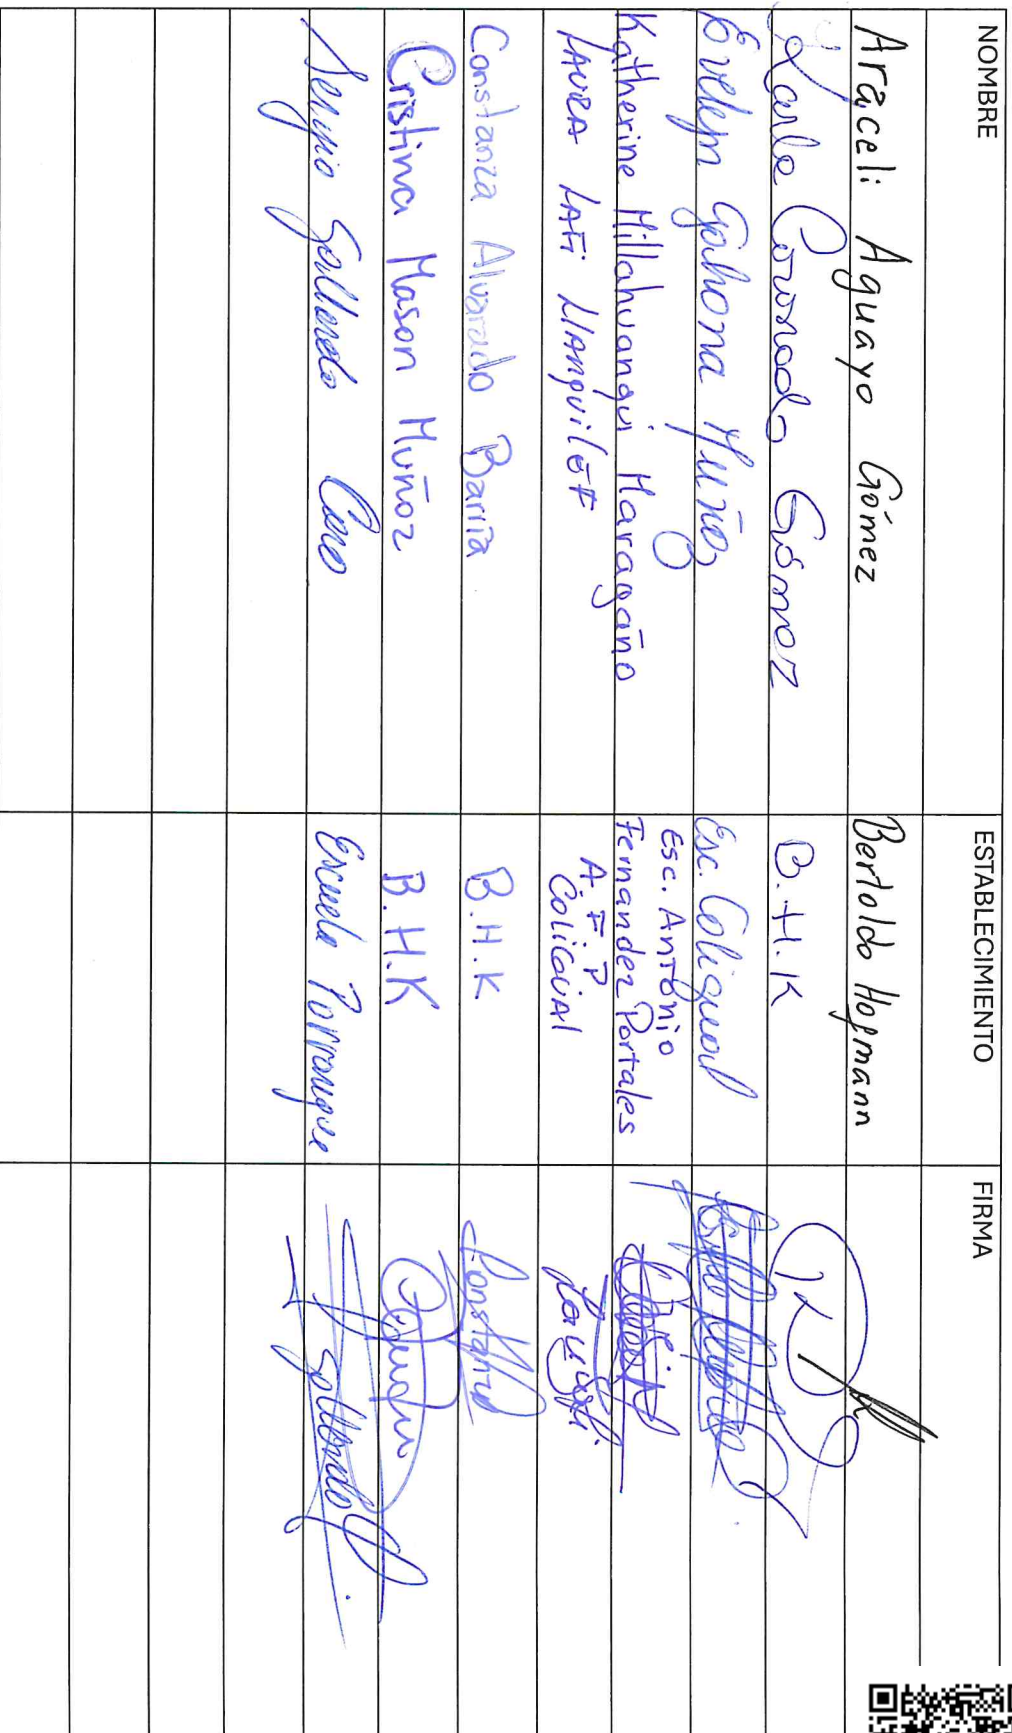 NOMBRE ESTABLECIMIENTO FIRMA
Araceli Aguayo Gómez Bertoldo Hofmann
Karla Coronado Gómez B.H.K
Evelyn Gahona Muñoz Esc. Coligual
Katherine Millahuanqui Maragaño Esc. Antonio
Fernandez Portales
LAURA LAFI LLANQUILEF A.F.P
Coligual
Constanza Alvarado Barría B.H.K Constanza
Cristina Mason Muñoz B.H.K
Sergio Gallardo Caro Escuela Purranque Gallardo